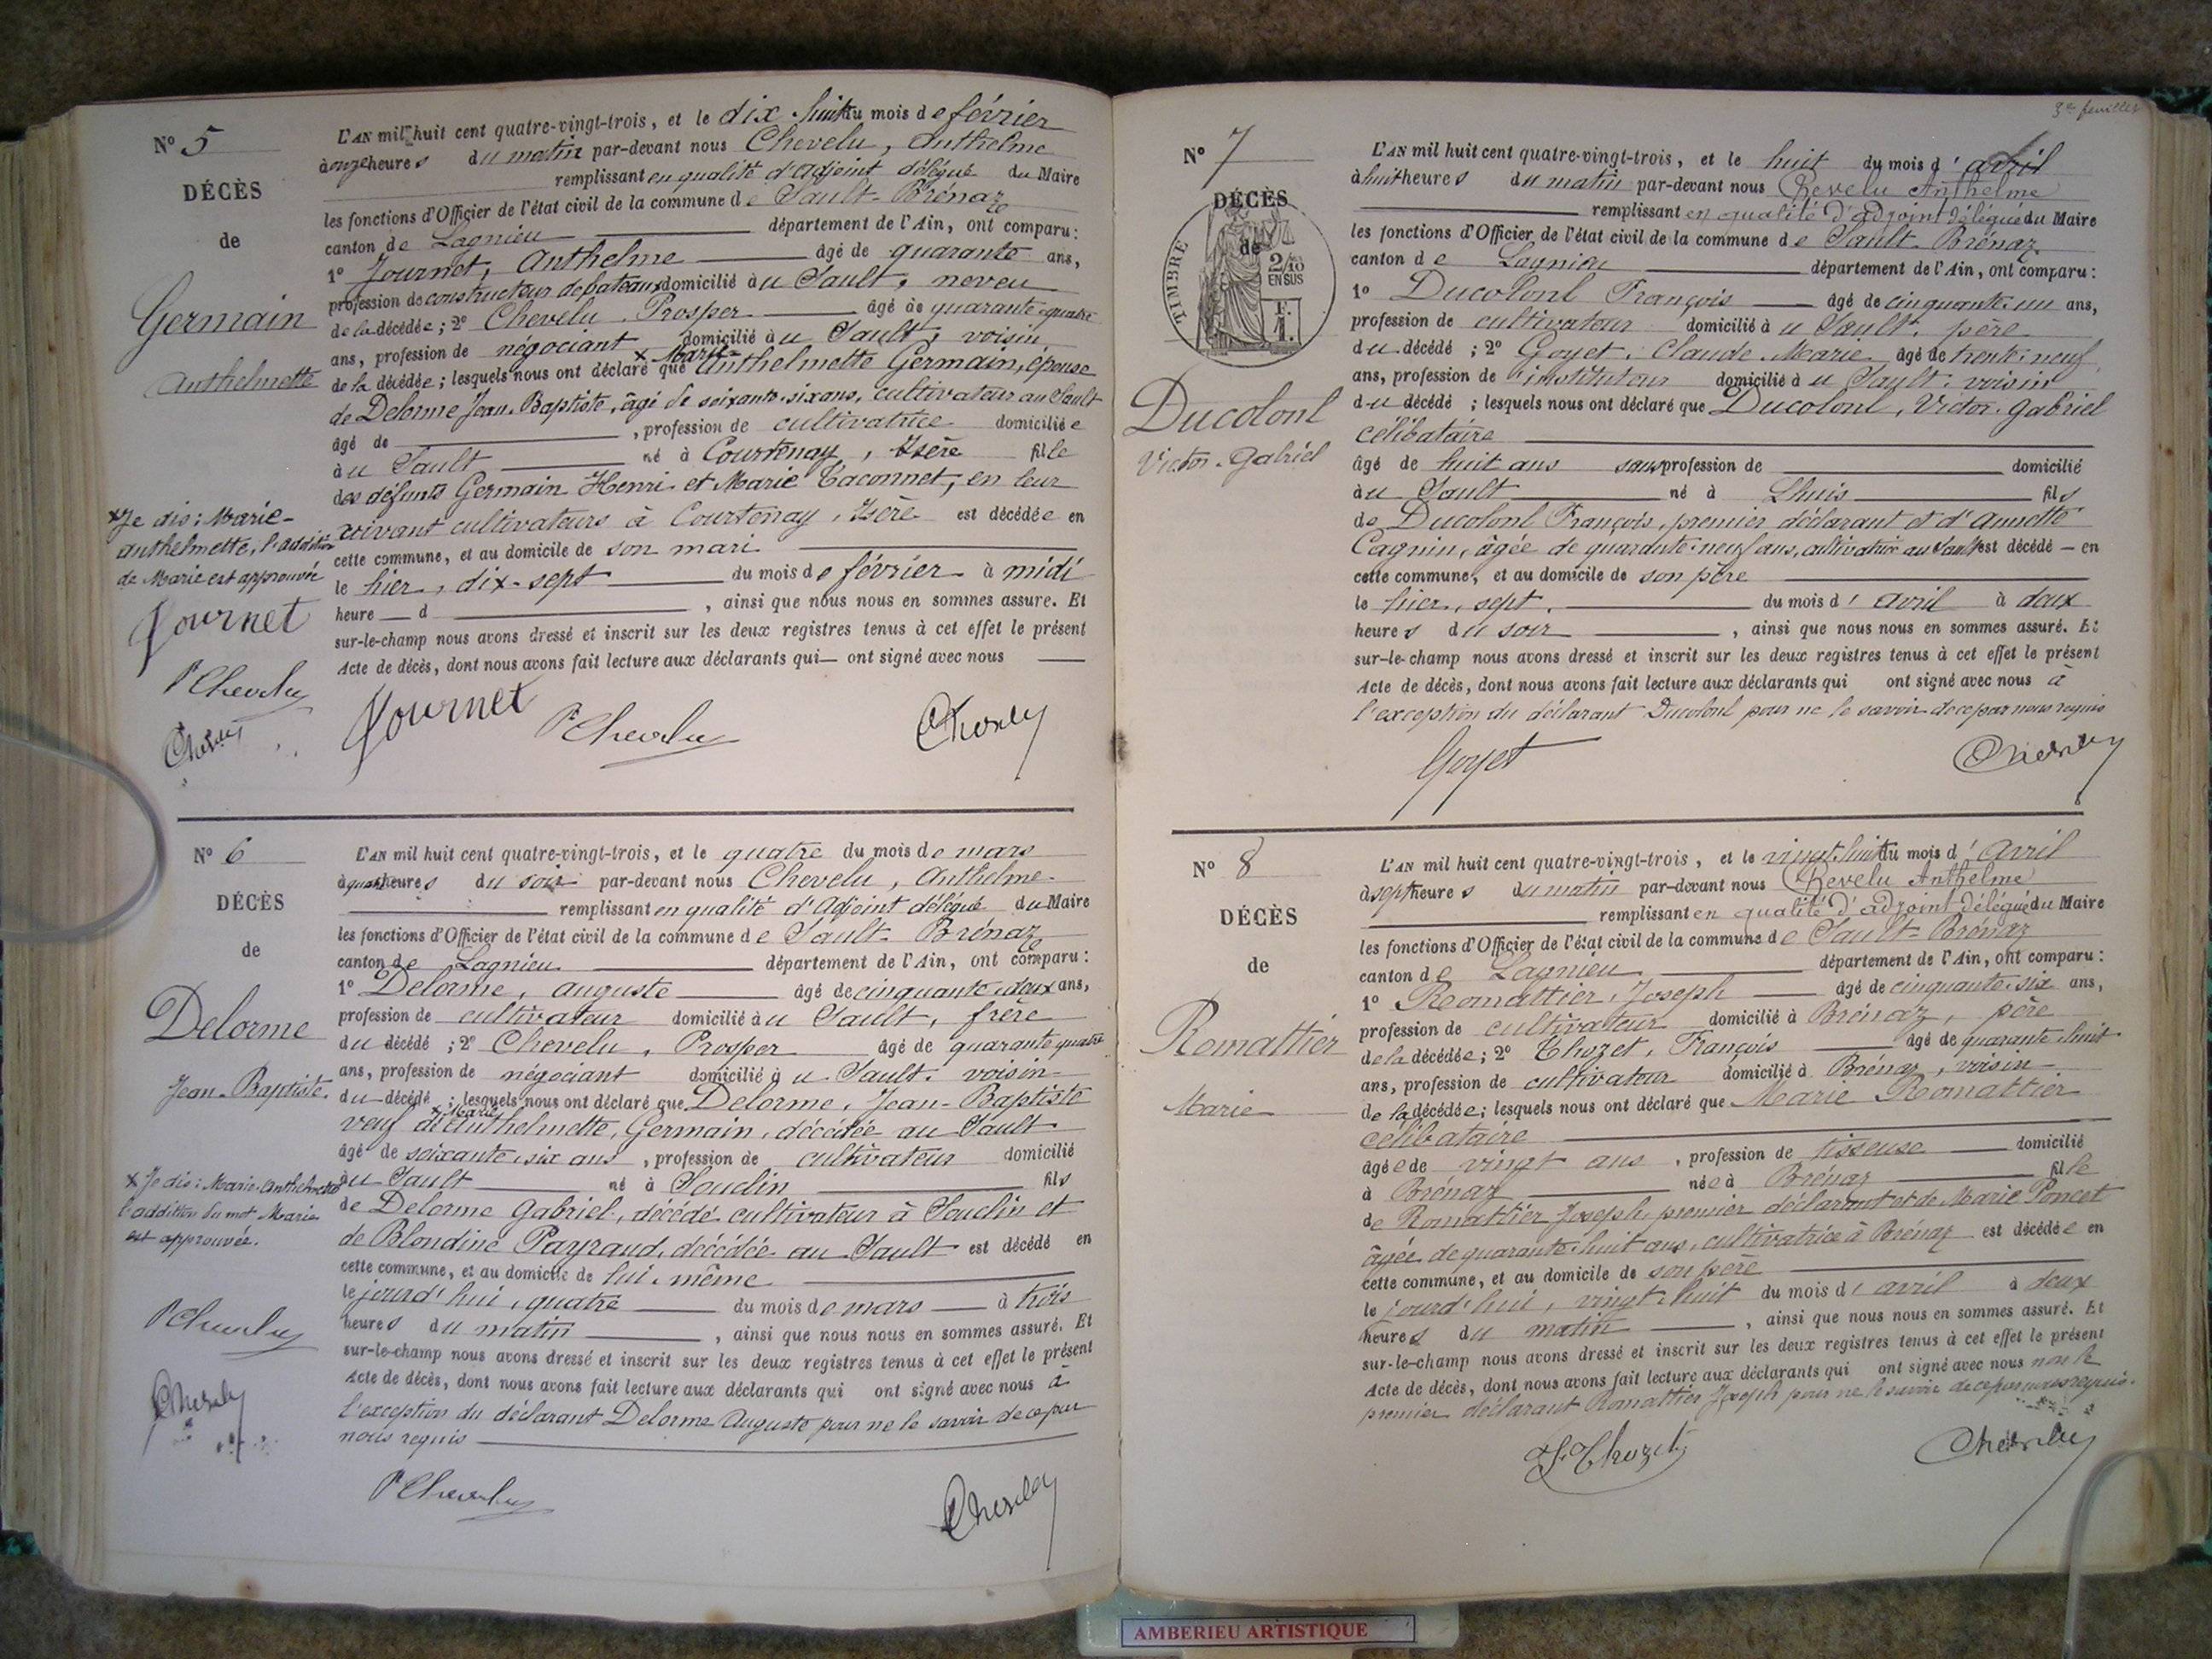 N° 5
DÉCÈS
de
Germain
Anthelmette
L'AN mil huit cent quatre-vingt-trois, et le dix-huit du mois de février
à onze heures du matin par-devant nous Chevelu, Anthelme
remplissant en qualité d'adjoint délégué du Maire
les fonctions d'Officier de l'état civil de la commune de Sault-Brénaz
canton de Lagnieu département de l'Ain, ont comparu:
1° Journet, Anthelme âgé de quarante ans,
profession de constructeur de bateaux domicilié au Sault, neveu
de la décédée; 2° Chevelu, Prosper âgé de quarante-quatre
ans, profession de négociant domicilié au Sault, voisin,
de la décédée; lesquels nous ont déclaré que x Marie- Anthelmette Germain, épouse
de Delorme Jean-Baptiste, âgé de soixante-six ans, cultivateur au Sault
âgé de , profession de cultivatrice domiciliée
au Sault né à Courtenay, Isère fille
des défunts Germain Henri et Marie Taconnet, en leur
vivant cultivateurs à Courtenay, Isère est décédée en
cette commune, et au domicile de son mari
le hier, dix-sept du mois de février à midi
heure d , ainsi que nous nous en sommes assuré. Et
sur-le-champ nous avons dressé et inscrit sur les deux registres tenus à cet effet le présent
Acte de décès, dont nous avons fait lecture aux déclarants qui ont signé avec nous
x Je dis: Marie-
anthelmette, l'addition
de Marie est approuvée
Journet
P. Chevelu
Chevelu
Journet P. Chevelu Chevelu
N° 6
DÉCÈS
de
Delorme
Jean-Baptiste.
L'AN mil huit cent quatre-vingt-trois, et le quatre du mois de mars
à quatre heures du soir par-devant nous Chevelu, Anthelme
remplissant en qualité d'Adjoint délégué du Maire
les fonctions d'Officier de l'état civil de la commune de Sault-Brénaz
canton de Lagnieu département de l'Ain, ont comparu:
1° Delorme, Auguste âgé de cinquante-deux ans,
profession de cultivateur domicilié au Sault, frère
du décédé; 2° Chevelu, Prosper âgé de quarante-quatre
ans, profession de négociant domicilié au Sault, voisin
du décédé; lesquels nous ont déclaré que Delorme, Jean-Baptiste
veuf de x Marie Anthelmette, Germain, décédée au Sault
âgé de soixante-six ans, profession de cultivateur domicilié
au Sault né à Souclin fils
de Delorme Gabriel, décédé cultivateur à Souclin et
de Blondine Payraud, décédée au Sault est décédé en
cette commune, et au domicile de lui-même
le jourd'hui, quatre du mois de mars à trois
heures du matin , ainsi que nous nous en sommes assuré. Et
sur-le-champ nous avons dressé et inscrit sur les deux registres tenus à cet effet le présent
Acte de décès, dont nous avons fait lecture aux déclarants qui ont signé avec nous à
l'exception du déclarant Delorme Auguste pour ne le savoir de ce par
nous requis
x Je dis: Marie-Anthelmette
l'addition du mot Marie
est approuvée.
P. Chevelu
Chevelu
P. Chevelu Chevelu
3e feuillet
N° 7
DÉCÈS
de
TIMBRE
2/10
EN SUS
F.
1.
Ducolonl
Victor-Gabriel
L'AN mil huit cent quatre-vingt-trois, et le huit du mois d'avril
à huit heures du matin par-devant nous Chevelu Anthelme
remplissant en qualité d'adjoint délégué du Maire
les fonctions d'Officier de l'état civil de la commune de Sault-Brénaz
canton de Lagnieu département de l'Ain, ont comparu:
1° Ducolonl François âgé de cinquante-un ans,
profession de cultivateur domicilié au Sault, père
du décédé; 2° Goyet, Claude-Marie âgé de trente-neuf
ans, profession de instituteur domicilié au Sault, voisin
du décédé; lesquels nous ont déclaré que Ducolonl, Victor-Gabriel
célibataire
âgé de huit ans sans profession de domicilié
au Sault né à Lhuis fils
de Ducolonl François, premier déclarant et d'Annette
Cagnin, âgée de quarante-neuf ans, cultivatrice au Sault est décédé en
cette commune, et au domicile de son père
le hier, sept, du mois d'avril à deux
heures du soir , ainsi que nous nous en sommes assuré. Et
sur-le-champ nous avons dressé et inscrit sur les deux registres tenus à cet effet le présent
Acte de décès, dont nous avons fait lecture aux déclarants qui ont signé avec nous à
l'exception du déclarant Ducolonl pour ne le savoir de ce par nous requis
Goyet Chevelu
N° 8
DÉCÈS
de
Romattier
Marie
L'AN mil huit cent quatre-vingt-trois, et le vingt-huit du mois d'avril
à sept heures du matin par-devant nous Chevelu Anthelme
remplissant en qualité d'adjoint délégué du Maire
les fonctions d'Officier de l'état civil de la commune de Sault-Brénaz
canton de Lagnieu département de l'Ain, ont comparu:
1° Romattier, Joseph âgé de cinquante-six ans,
profession de cultivateur domicilié à Brénaz, père
de la décédée; 2° Thozet, François âgé de quarante-huit
ans, profession de cultivateur domicilié à Brénaz, voisin
de la décédée; lesquels nous ont déclaré que Marie Romattier
célibataire
âgée de vingt ans, profession de tisseuse domicilié
à Brénaz née à Brénaz fille
de Romattier Joseph, premier déclarant et de Marie Poncet
âgée de quarante-huit ans, cultivatrice à Brénaz est décédée en
cette commune, et au domicile de son père
le jourd'hui, vingt-huit du mois d'avril à deux
heures du matin , ainsi que nous nous en sommes assuré. Et
sur-le-champ nous avons dressé et inscrit sur les deux registres tenus à cet effet le présent
Acte de décès, dont nous avons fait lecture aux déclarants qui ont signé avec nous non le
premier déclarant Romattier Joseph pour ne le savoir de ce par nous requis.
F. Thozet Chevelu
AMBERIEU ARTISTIQUE